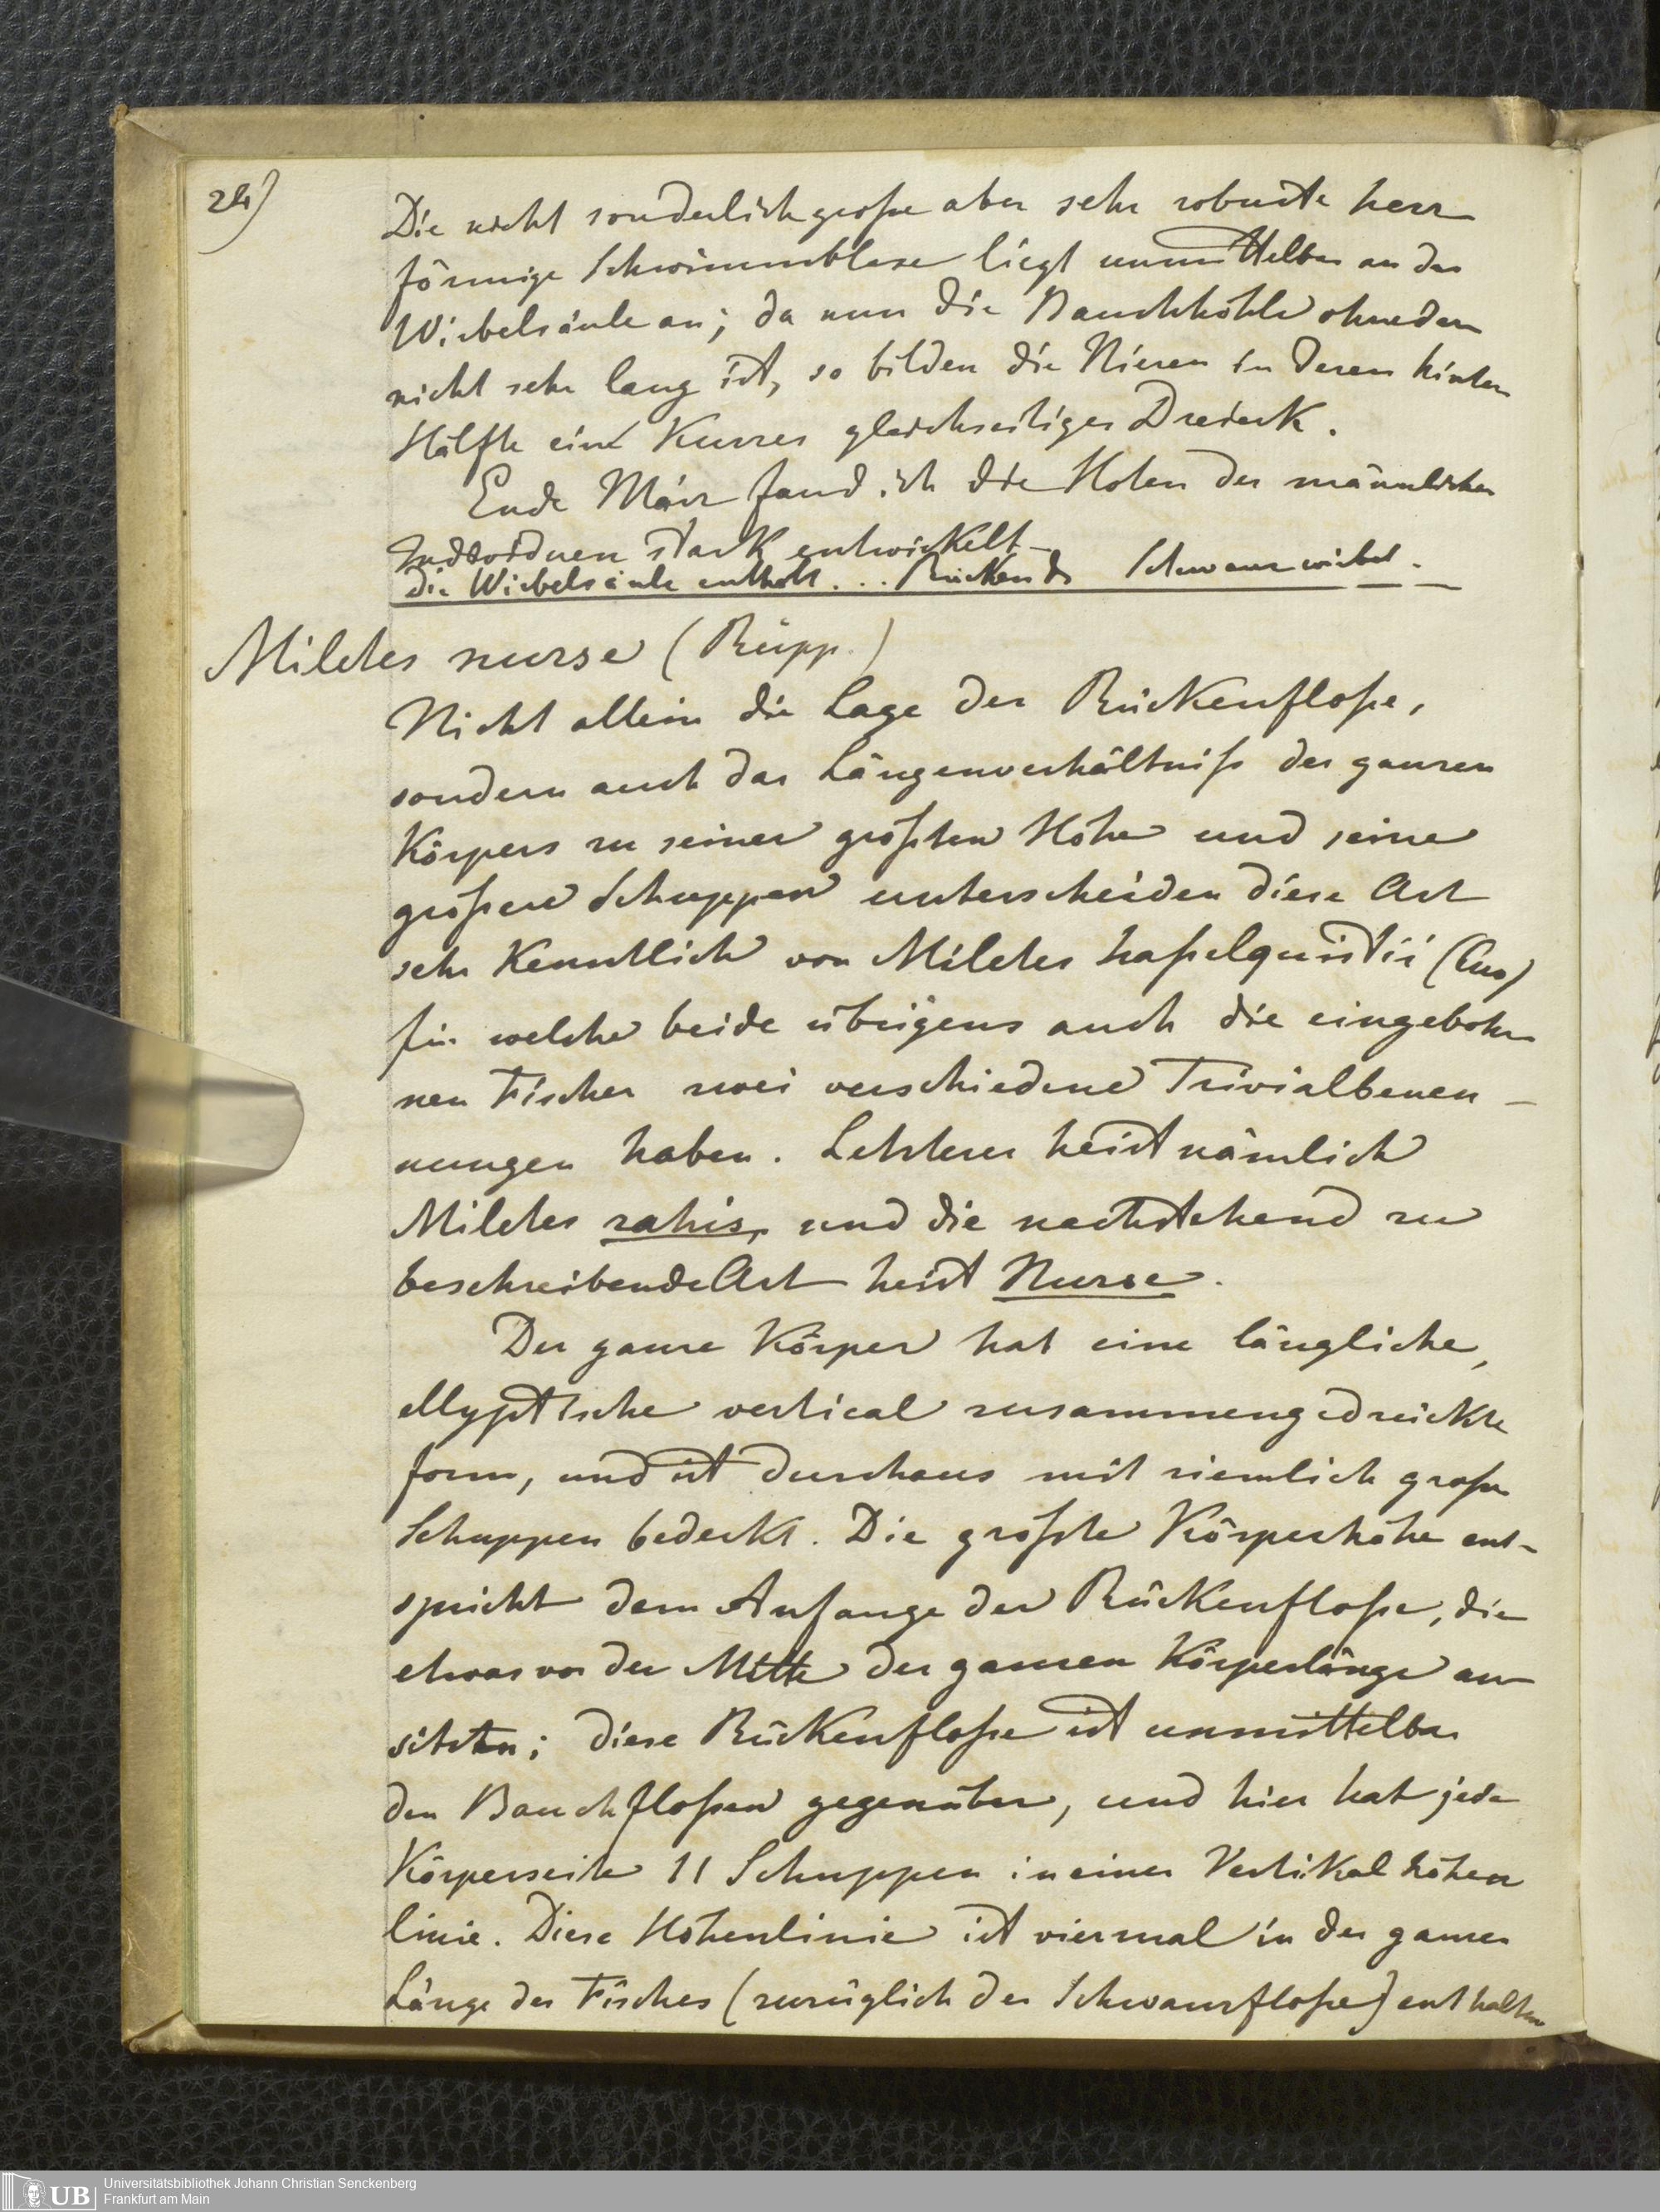 24)
Die nicht sonderlich große aber sehr robuste herz
förmige Schwimmblase liegt unmittelbar an der
Wirbelsäule an; da nun die Bauchhöhle ohnedem
nicht sehr lang ist, so bilden die Nieren in deren hinter
Hälfte ein kurzes gleichseitiges Dreieck.
Ende März fand ich die Hoden der männlichen
Individuen stark entwickelt
die Wirbelsäule enthält ... Rücken & Schwanzwirbel.
Miletes nurse (Rüpp.)
Nicht allein die Lage der Rückenfloße,
sondern auch das Längenverhältniß des ganzen
Körpers zu seiner größten Höhe und seine
großere Schuppen unterscheiden diese Art
sehr kenntlich von Miletes haßelquistii (Cuv)
für welche beide übrigens auch die eingebohr
nen Fischer zwei verschiedene Trivialbenen-
nungen haben. Letzterer heist nämlich
Miletes rahis, und die nachstehend zu
beschreibende Art heist Nurse.
Der ganze Körper hat eine längliche,
ellyptische vertical zusammengedrückte
form, und ist durchaus mit ziemlich großen
Schuppen bedeckt. Die größte Körperhöhe ent-
spricht dem Anfange der Rückenfloße, die
etwas vor der Mitte der ganzen Körperlänge an
sitzt; diese Rückenfloße ist unmittelbar
den Bauchfloßen gegenüber, und hier hat jede
Körperseite 11 Schuppen in einer Vertikal höhen
linie. Diese Höhenlinie ist viermal in der ganzen
Länge des Fisches (zuzüglich der Schwanzfloße) enthalten
Universitätsbibliothek Johann Christian Senckenberg
Frankfurt am Main
UB